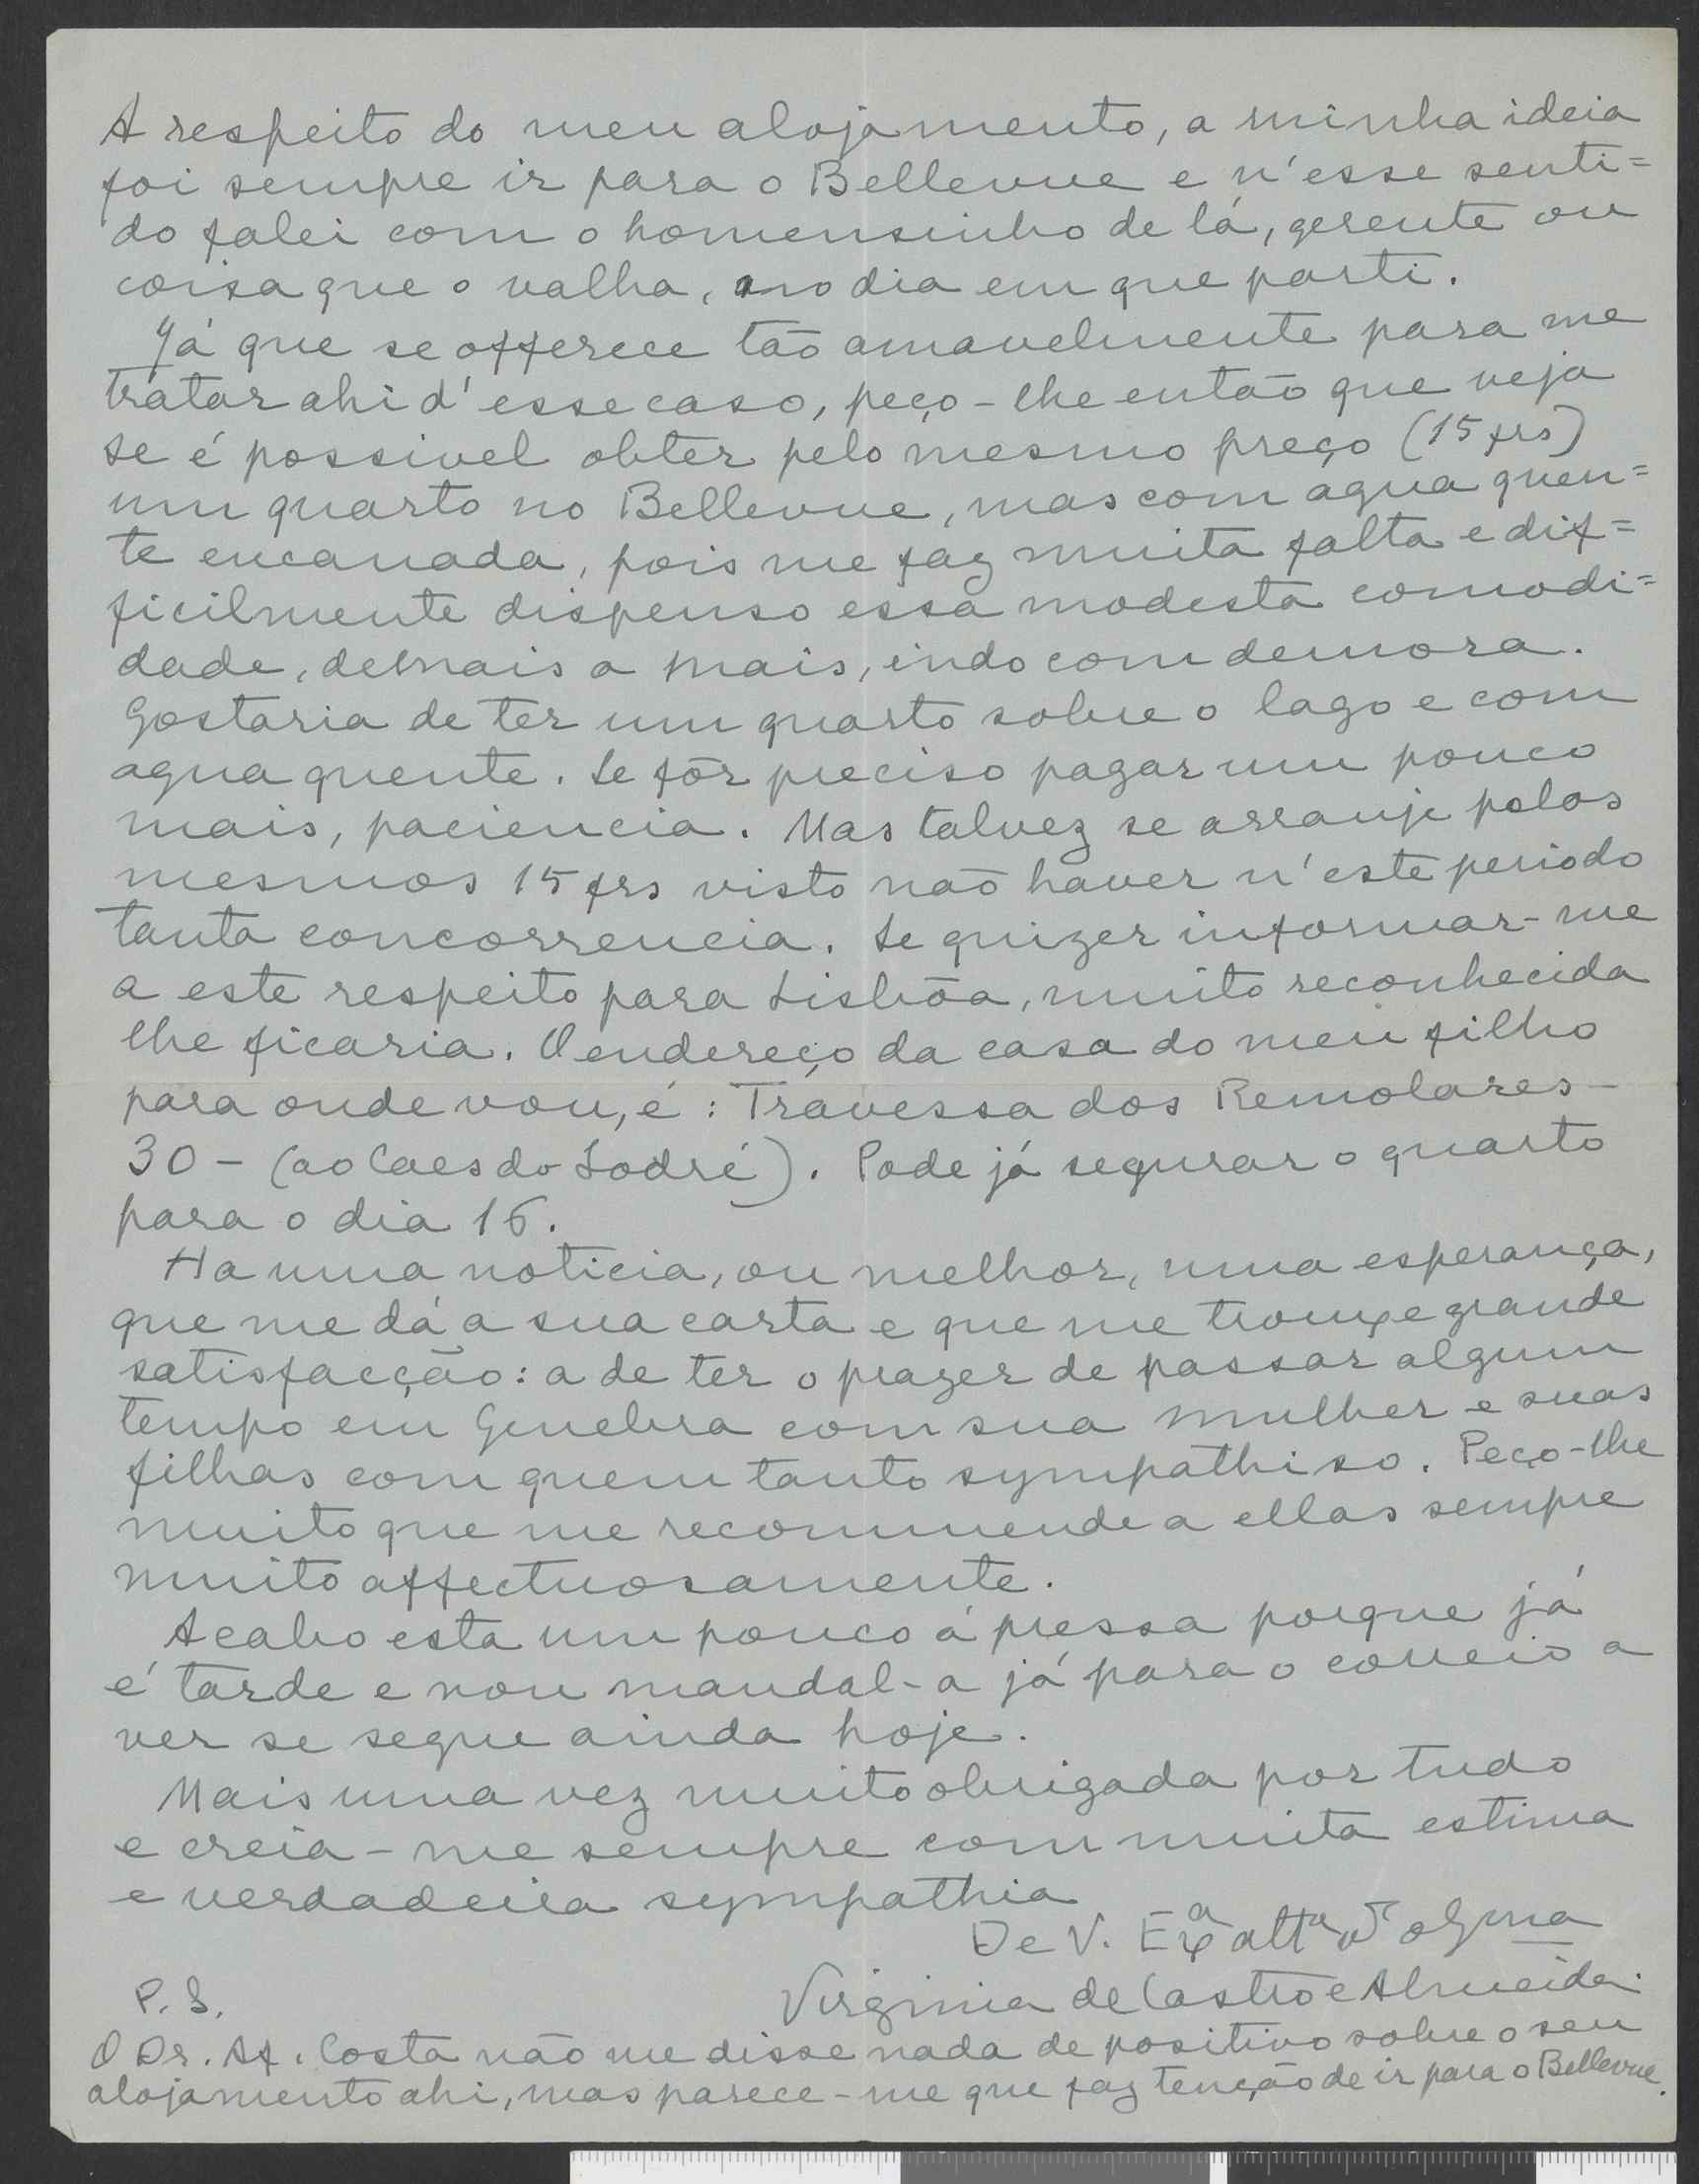 A respeito do meu alojamento, a minha ideia
foi sempre ir para o Bellevue e n'esse senti=
do falei com o homensinho de lá, gerente ou
coisa que o valha, no dia em que parti.
Já que se offerece tão amavelmente para me
tratar ahi d'esse caso, peço-lhe então que veja
se é possivel obter pelo mesmo preço (15 frs)
um quarto no Bellevue, mas com agua quen=
te encanada, pois me faz muita falta e dif=
ficilmente dispenso essa modesta comodi=
dade, demais a mais, indo com demora.
Gostaria de ter um quarto sobre o lago e com
agua quente. Se fôr preciso pagar um pouco
mais, paciencia. Mas talvez se arranje pelos
mesmos 15 frs visto não haver n'este periodo
tanta concorrencia. Se quizer informar-me
a este respeito para Lisbôa, muito reconhecida
lhe ficaria. O endereço da casa do meu filho
para onde vou, é: Travessa dos Remolares-
30 - (ao Caes do Sodré). Pode já segurar o quarto
para o dia 16.
Ha uma noticia, ou melhor, uma esperança,
que me dá a sua carta e que me trouxe grande
satisfacção: a de ter o prazer de passar algum
tempo em Genebra com sua mulher e suas
filhas com quem tanto sympathiso. Peço-lhe
muito que me recommende a ellas sempre
muito affectuosamente.
Acabo esta um pouco á pressa porque já
é tarde e vou mandal-a já para o correio a
ver se segue ainda hoje.
Mais uma vez muito obrigada por tudo
e creia-me sempre com muita estima
e verdadeira sympathia
De V. Exª attª
Virginia de Castro e Almeida.
P.S.
O Dr. Af. Costa não me disse nada de positivo sobre o seu
alojamento ahi, mas parece-me que faz tenção de ir para o Bellevue.